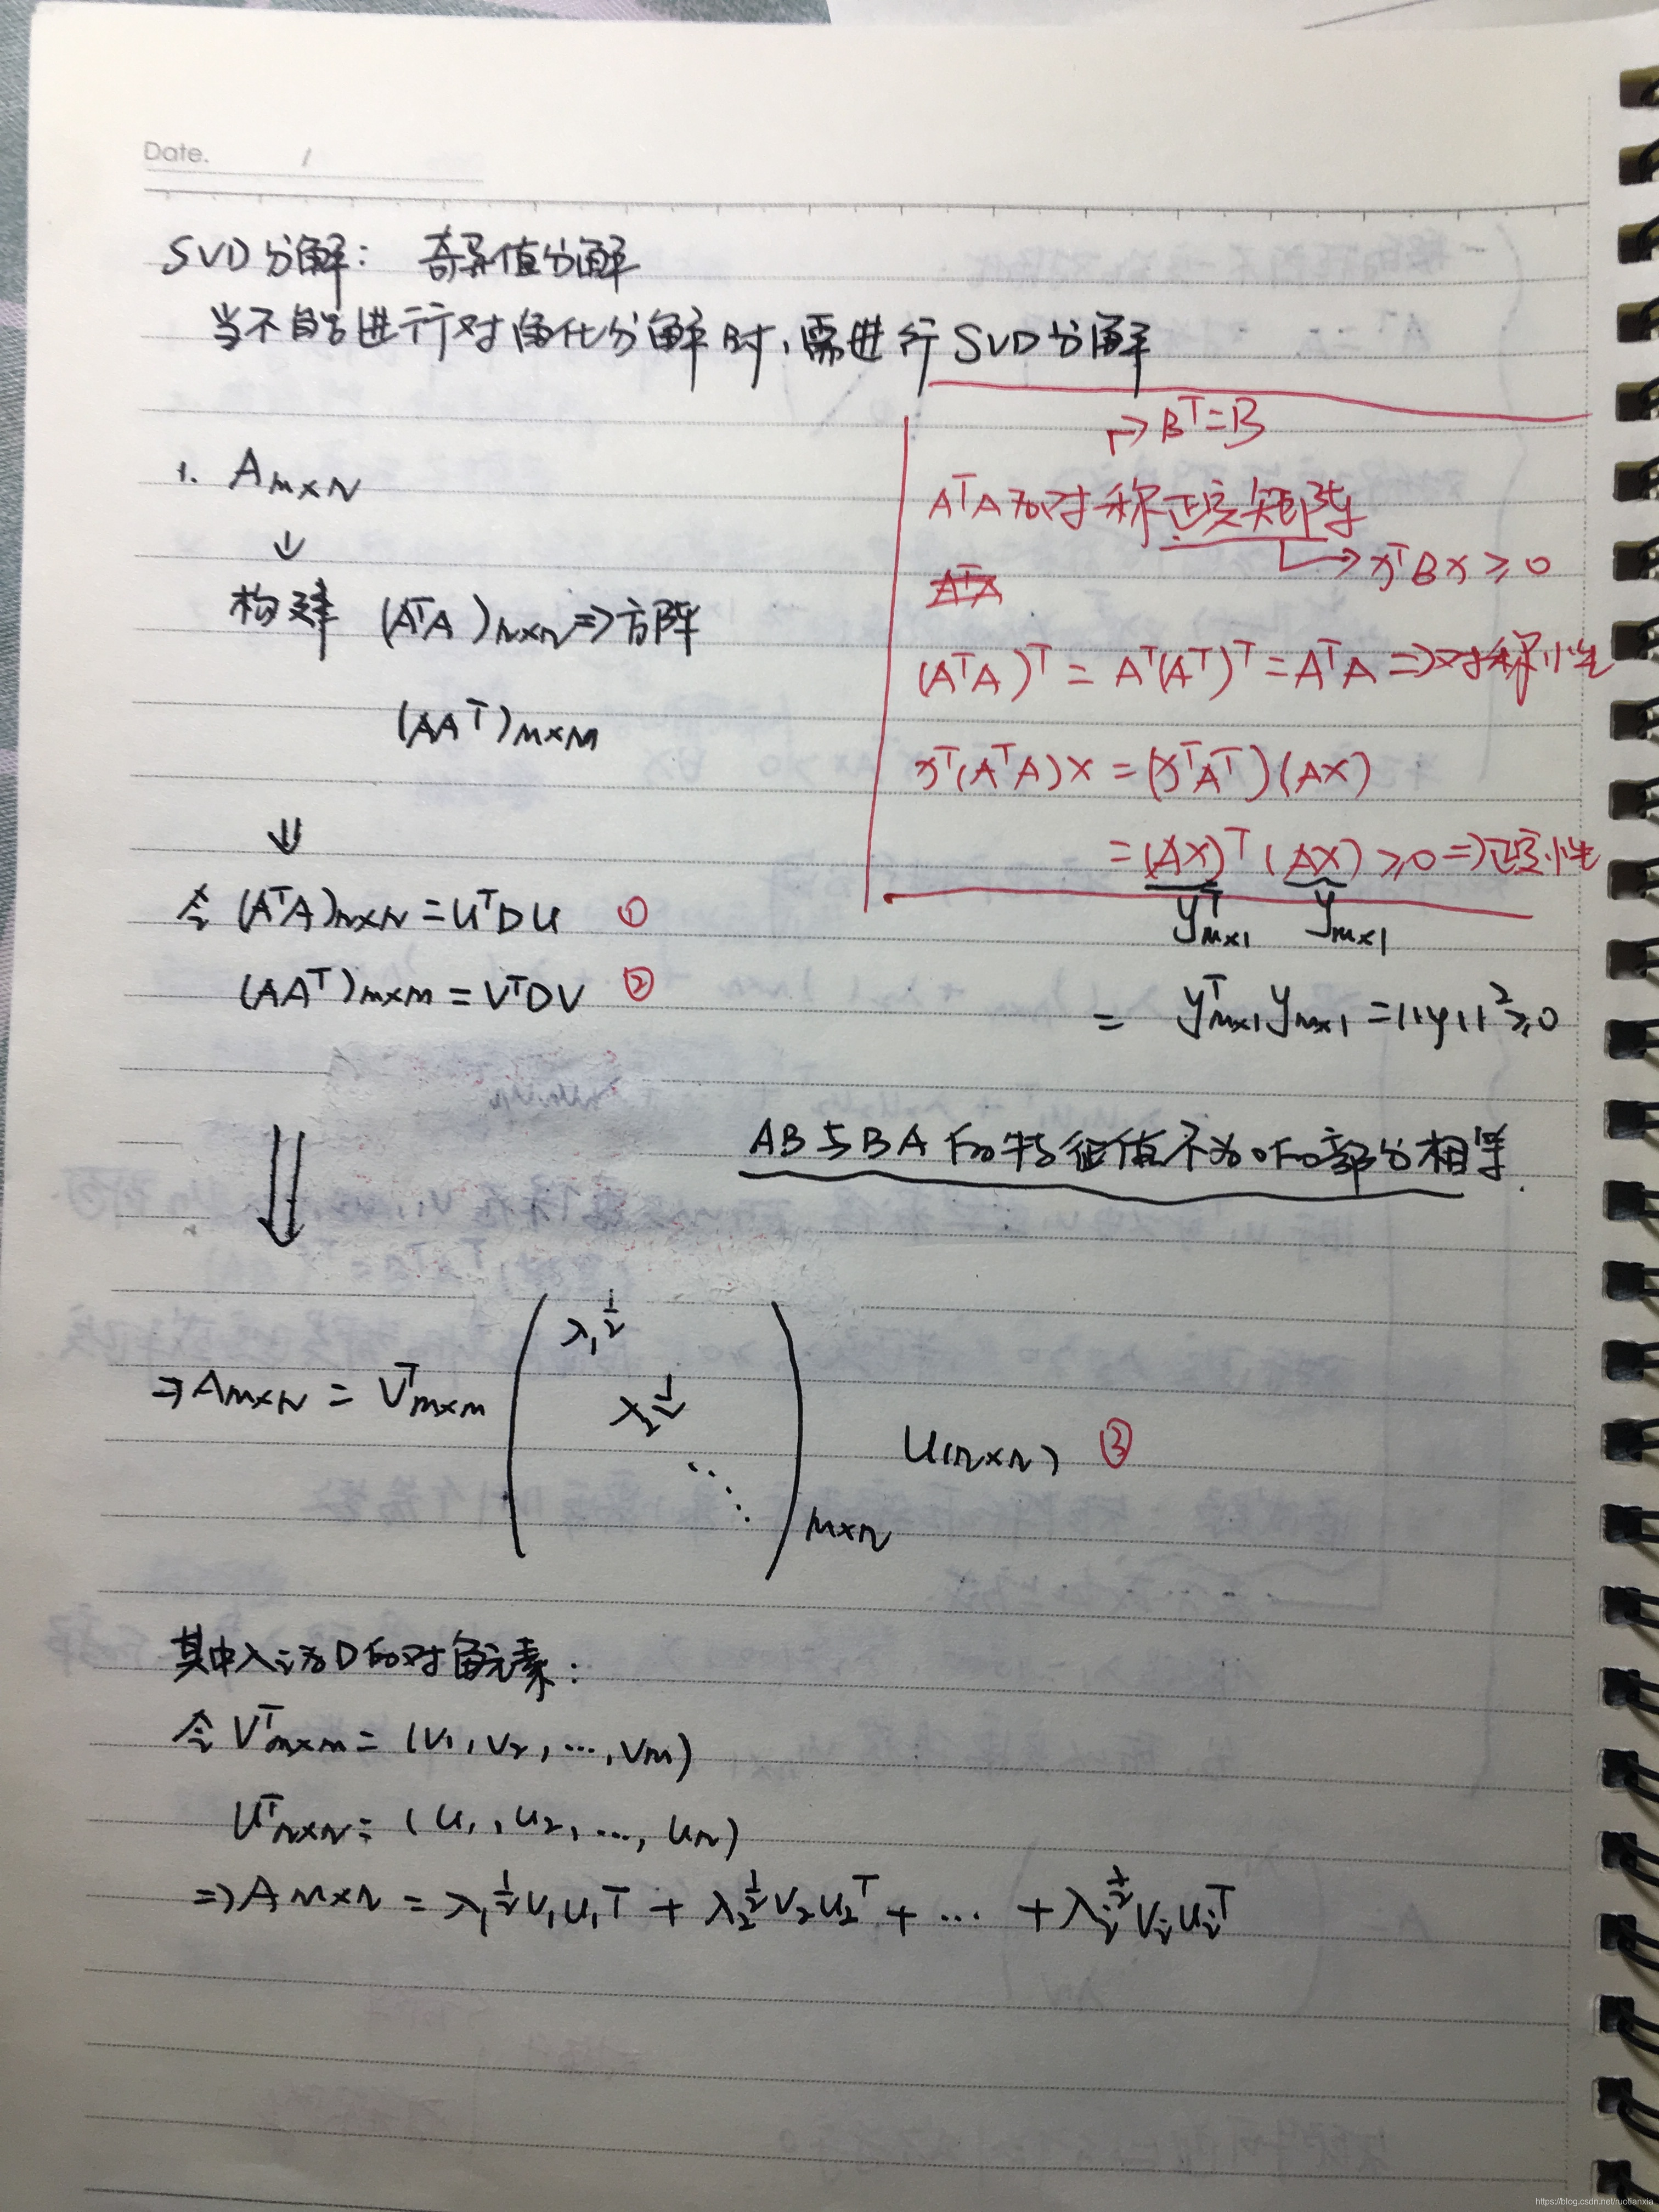 Date. /
SVD分解: 奇异值分解
当不能进行对角化分解时,需进行SVD分解
1. A_{m×n}
↓
构建 (AᵀA)_{n×n} ⇒ 方阵
(AAᵀ)_{m×m}
⇓
令 (AᵀA)_{n×n} = UᵀDU ①
(AAᵀ)_{m×m} = VᵀDV ②
→ Bᵀ=B
AᵀA为对称正定矩阵
→ xᵀBx ≥ 0
(AᵀA)ᵀ = Aᵀ(Aᵀ)ᵀ = AᵀA ⇒ 对称性
xᵀ(AᵀA)x = (xᵀAᵀ)(Ax)
= (Ax)ᵀ(Ax) ≥ 0 ⇒ 正定性
yᵀ_{m×1} y_{m×1}
= yᵀ_{m×1} y_{m×1} = ||y||² ≥ 0
AB与BA的特征值不为0的部分相等.
⇓
⇒ A_{m×n} = Vᵀ_{m×m} ( λ₁^{1/2} λ₂^{1/2} ⋱ )_{m×n} U(n×n) ③
其中λᵢ为D的对角元素:
令 Vᵀ_{m×m} = (v₁, v₂, ..., vm)
Uᵀ_{n×n} = (u₁, u₂, ..., un)
⇒ A_{m×n} = λ₁^{1/2}v₁u₁ᵀ + λ₂^{1/2}v₂u₂ᵀ + ... + λᵢ^{1/2}vᵢuᵢᵀ
https://blog.csdn.net/ruotianxia